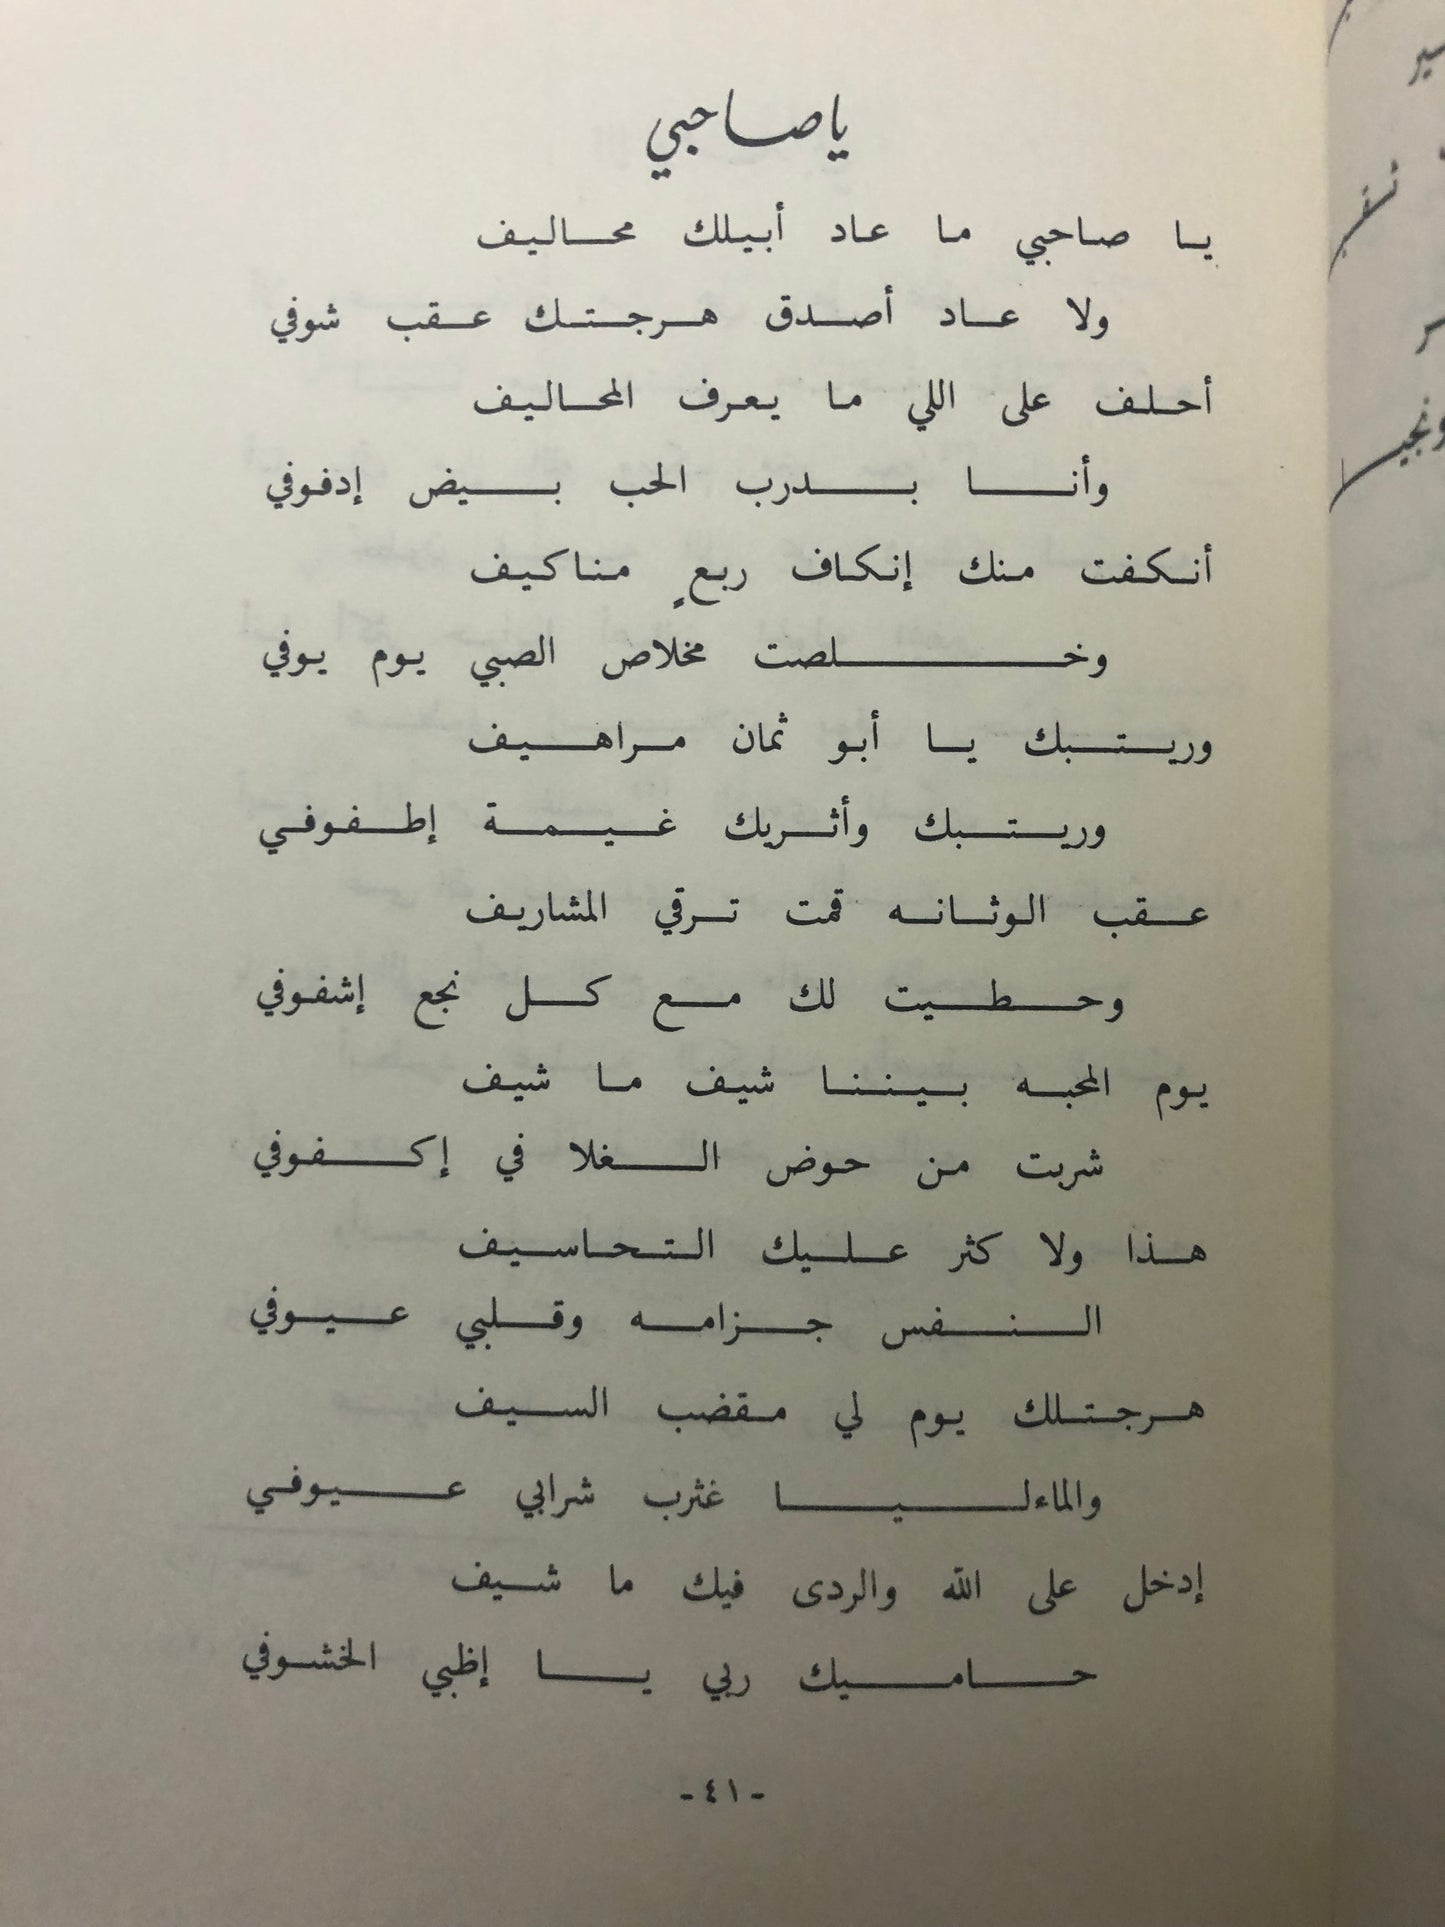 ياصاحبي
يا صاحبي ما عاد أبيلك محاليف
ولا عاد أصدق هرجتك عقب شوفي
أحلف على اللي ما يعرف المحاليف
وأنا بدرب الحب بيض إدفوفي
أنكفت منك إنكاف ربعٍ مناكيف
وخلصت مخلاص الصبي يوم يوفي
وريتبك يا أبو ثمان مراهيف
وريتبك وأثريك غيمة إطفوفي
عقب الوثانه قمت ترقي المشاريف
وحطيت لك مع كل نجع إشفوفي
يوم المحبه بيننا شيف ما شيف
شربت من حوض الغلا في إكفوفي
هذا ولا كثر عليك التحاسيف
النفس جزامه وقلبي عيوفي
هرجتلك يوم لي مقضب السيف
والماءليا غثرب شرابي عيوفي
إدخل على الله والردى فيك ما شيف
حاميك ربي يا إظبي الخشوفي
- ٤١ -